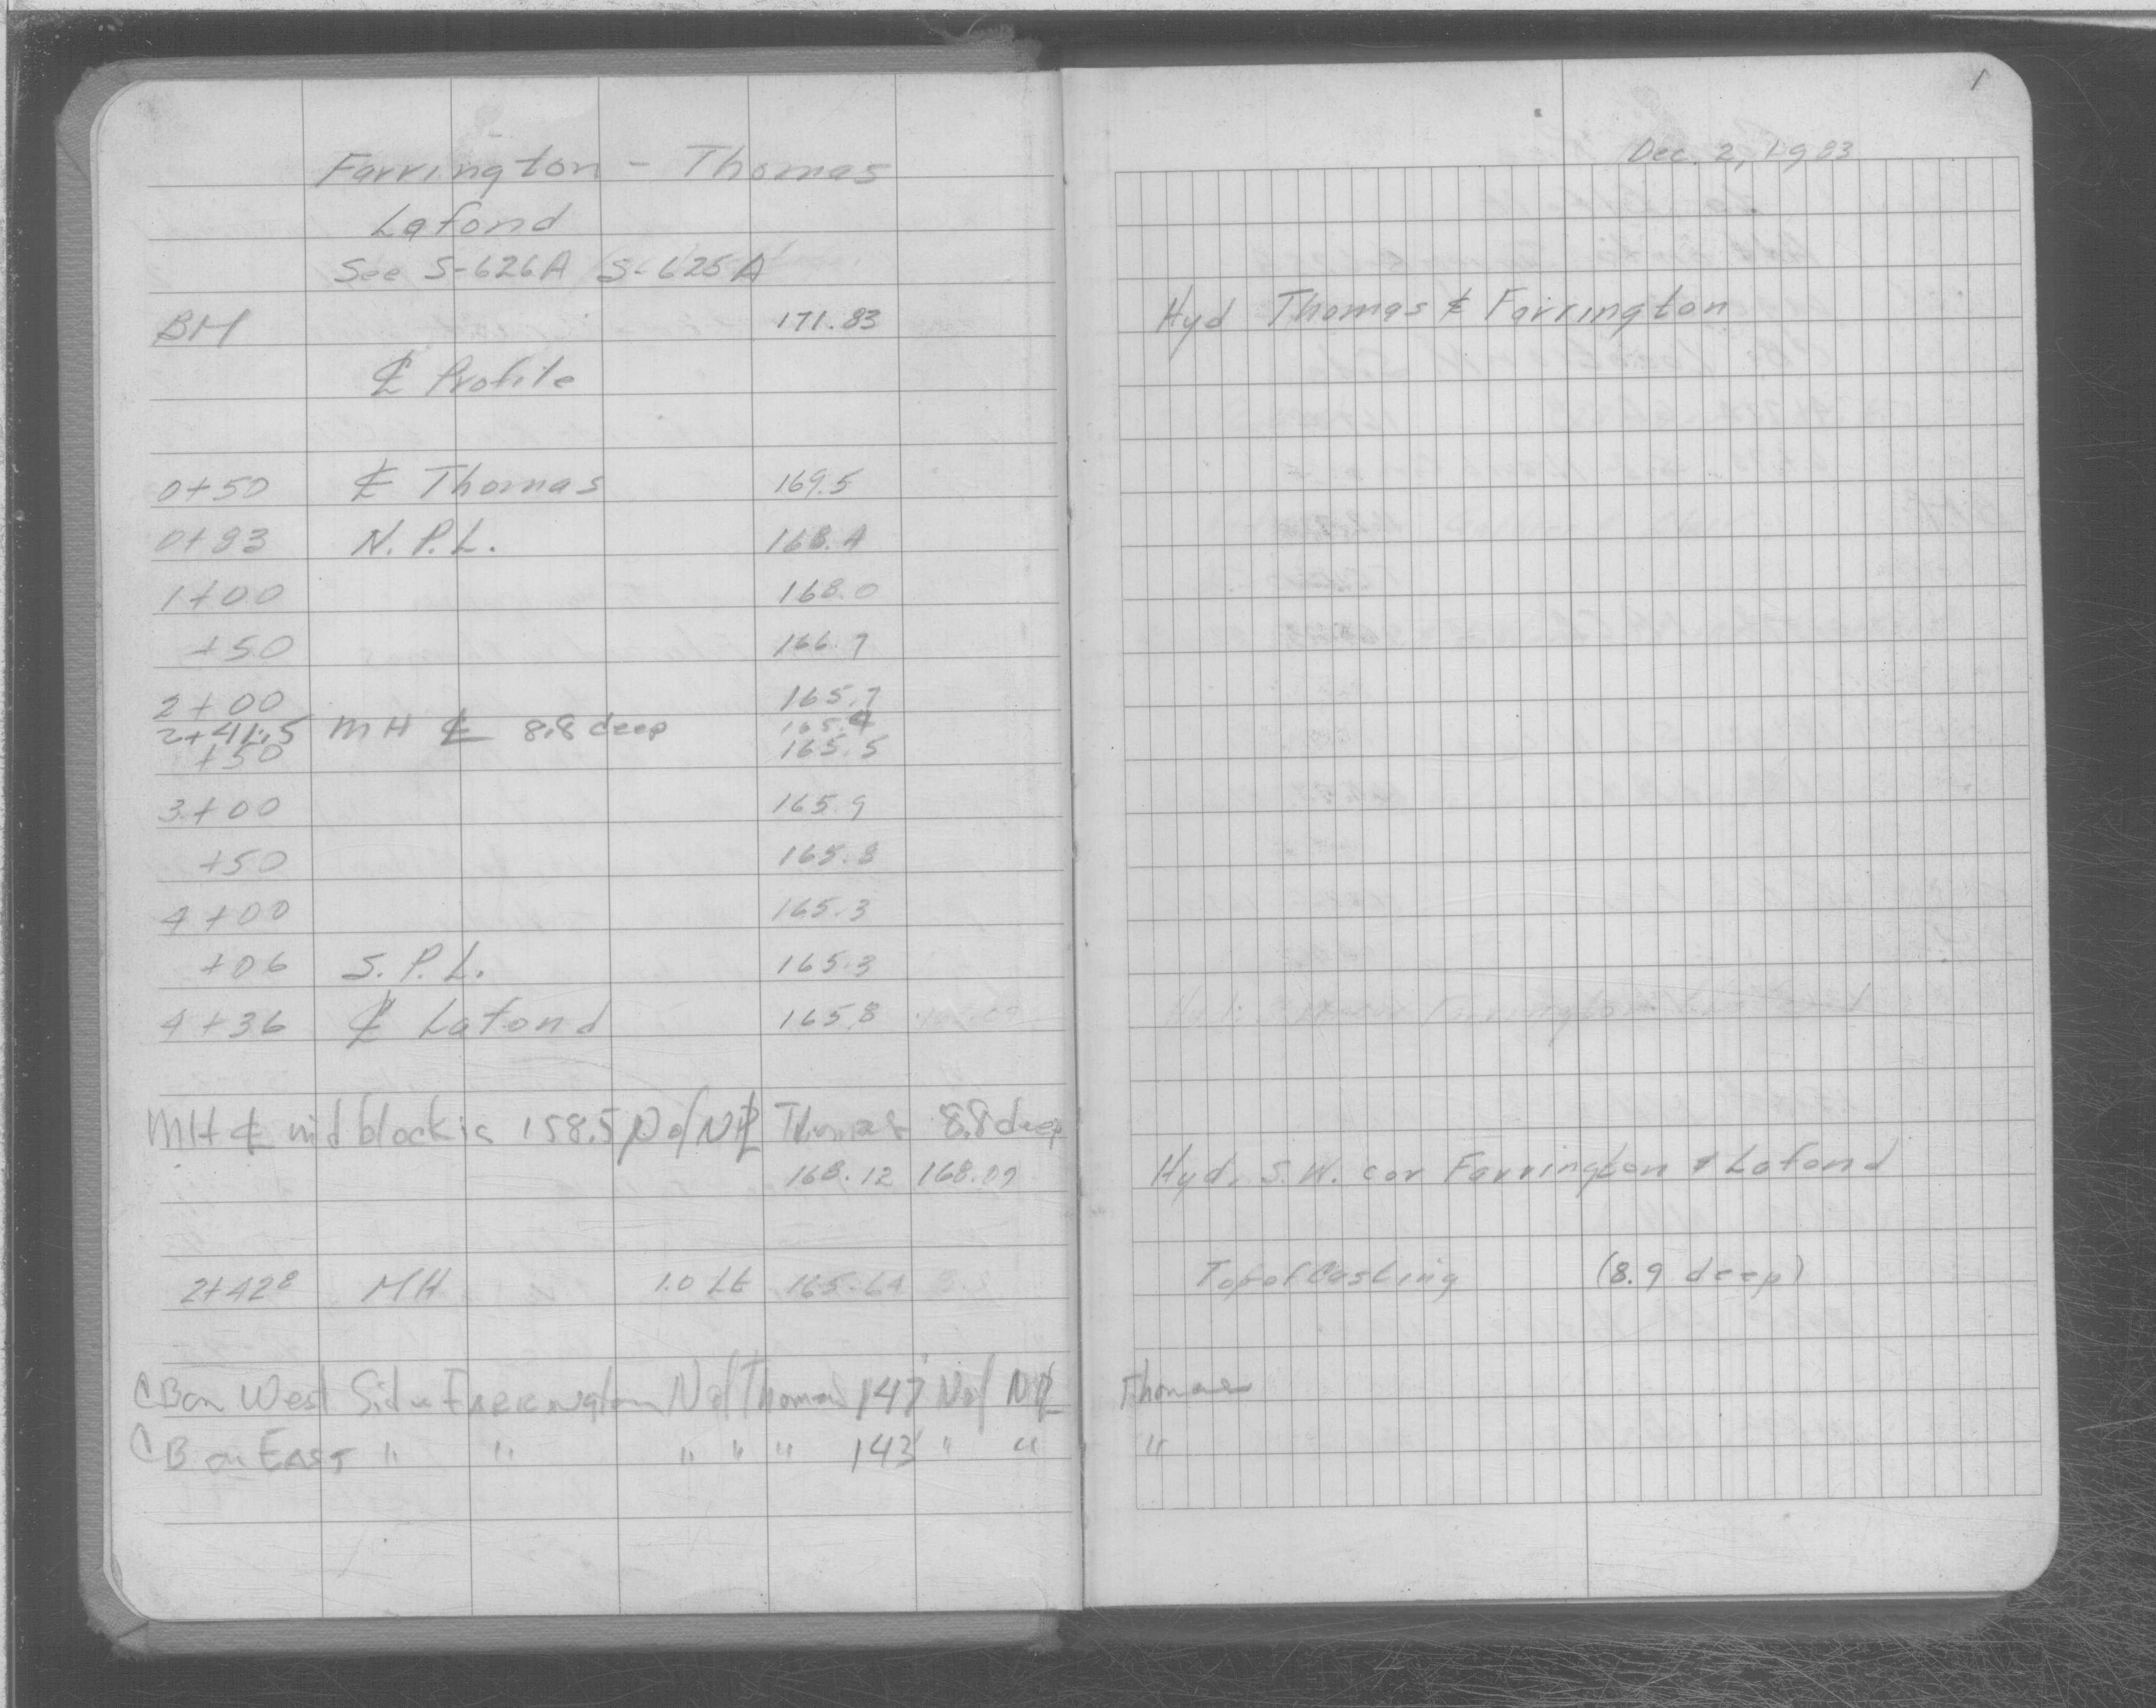 1
Dec. 2, 1983
Farrington - Thomas
Lafond
See S-626A / S-625A
BM 171.83 Hyd Thomas & Farrington
℄ Profile
0+50 ℄ Thomas 169.5
0+83 N.P.L. 168.4
1+00 168.0
+50 166.7
2+00 165.7
2+41.5 MH ℄ 8.8 deep 165.4
+50 165.5
3+00 165.9
+50 165.8
4+00 165.3
+06 S.P.L. 165.3
4+36 ℄ Lafond 165.8
MH ℄ mid block is 158.5 N of N℄ Thomas 8.8 deep
168.12 168.09 Hyd. S.W. cor Farrington & Lafond
2+42⁸ MH 1.0 Lt 165.64 Top of Casting (8.9 deep)
CB on West Side Farrington N of Thomas 147' N of N℄ Thomas
CB on EAST " " " " " 143' " " "